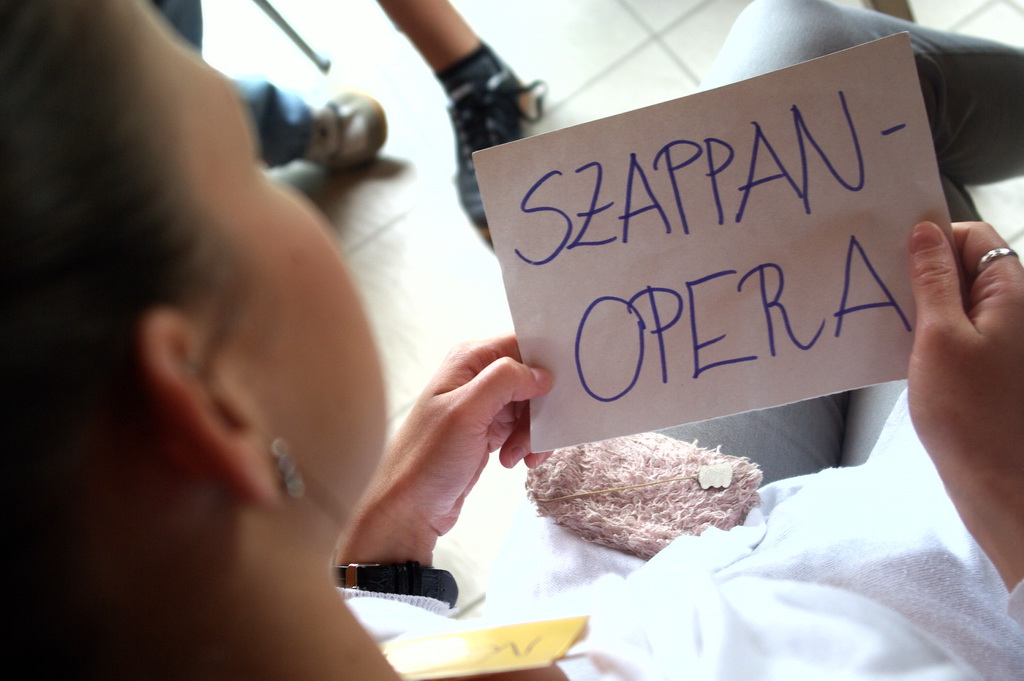 SZAPPAN-
OPERA